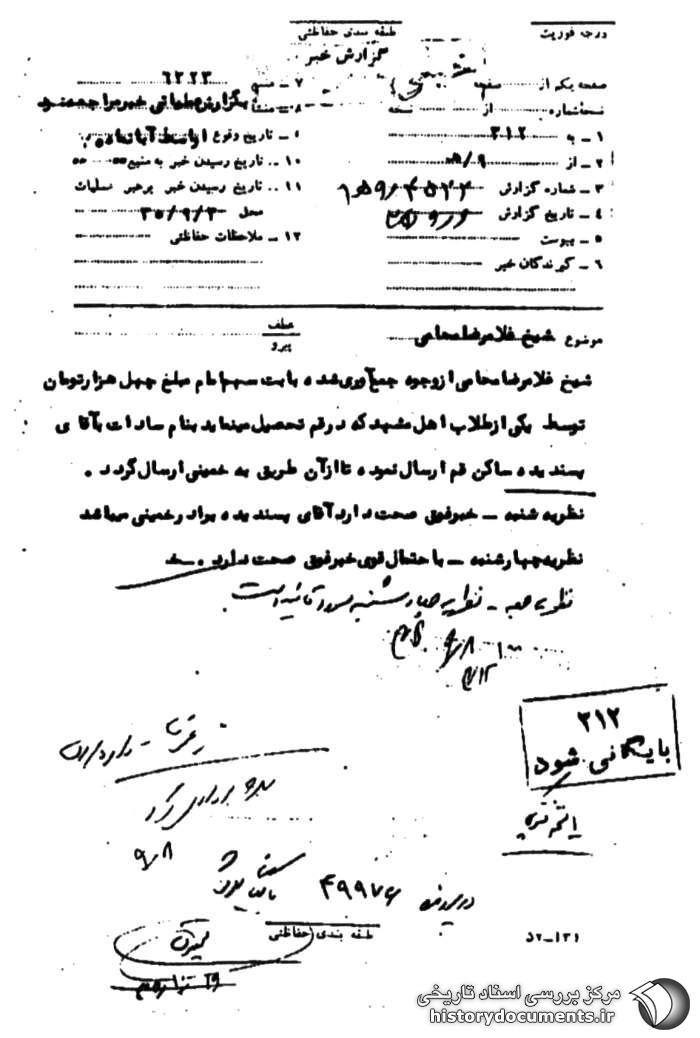 درجه فوریت
طبقه بندی حفاظتی
گزارش خبر
صفحه یکم از صفحه
نسخه شماره از نسخه
۱ـ به ۳۱۲
۲ـ از ۹/ه‍
۳ـ شماره گزارش
۴ـ تاریخ گزارش
۵ـ پیوست
۶ـ گیرندگان خبر
۷ـ منبع ۶۲۲۳
۸ـ منشاء بگزارش اطلاعاتی خبر مراجعه شود
۹ـ تاریخ وقوع اواسط آبانماه
۱۰ـ تاریخ رسیدن خبر به منبع
۱۱ـ تاریخ رسیدن خبر برهبر عملیات
محل ۳۵/۹/۳
۱۲ـ ملاحظات حفاظتی
موضوع شیخ غلامرضا محامی
عطف
پیرو
شیخ غلامرضا محامی از وجوه جمع آوری شده بابت سهم امام مبلغ چهل هزار تومان
توسط یکی از طلاب اهل مشهد که در قم تحصیل مینماید بنام سادات بآقای
پسندیده ساکن قم ارسال نموده تا از آن طریق به خمینی ارسال گردد .
نظریه شنبه ـ خبر فوق صحت دارد آقای پسندیده برادر خمینی میباشد
نظریه چهارشنبه ـ با احتمال قوی خبر فوق صحت دارد .
نظریه جمعه ـ نظریه چهارشنبه مورد تائید است.
۳۱۲
بایگانی شود
۹/۸
در پرونده ۴۹۹۷۶
طبقه بندی حفاظتی
۵۲ـ۱۳۱
مرکز بررسی اسناد تاریخی
historydocuments.ir